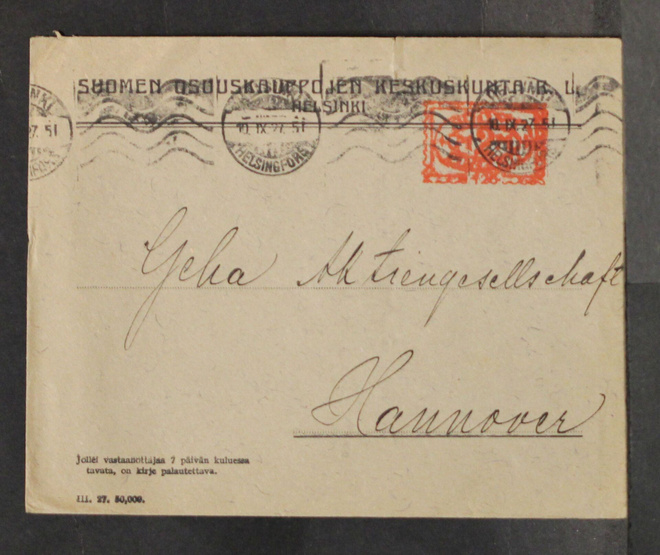 SUOMEN OSUUSKAUPPOJEN KESKUSKUNTA R. L.
HELSINKI
10.IX.27. 51
HELSINGFORS
10.IX.27. 51
Geha Aktiengesellschaft
Hannover
Jollei vastaanottajaa 7 päivän kuluessa
tavata, on kirje palautettava.
III. 27. 50,000.